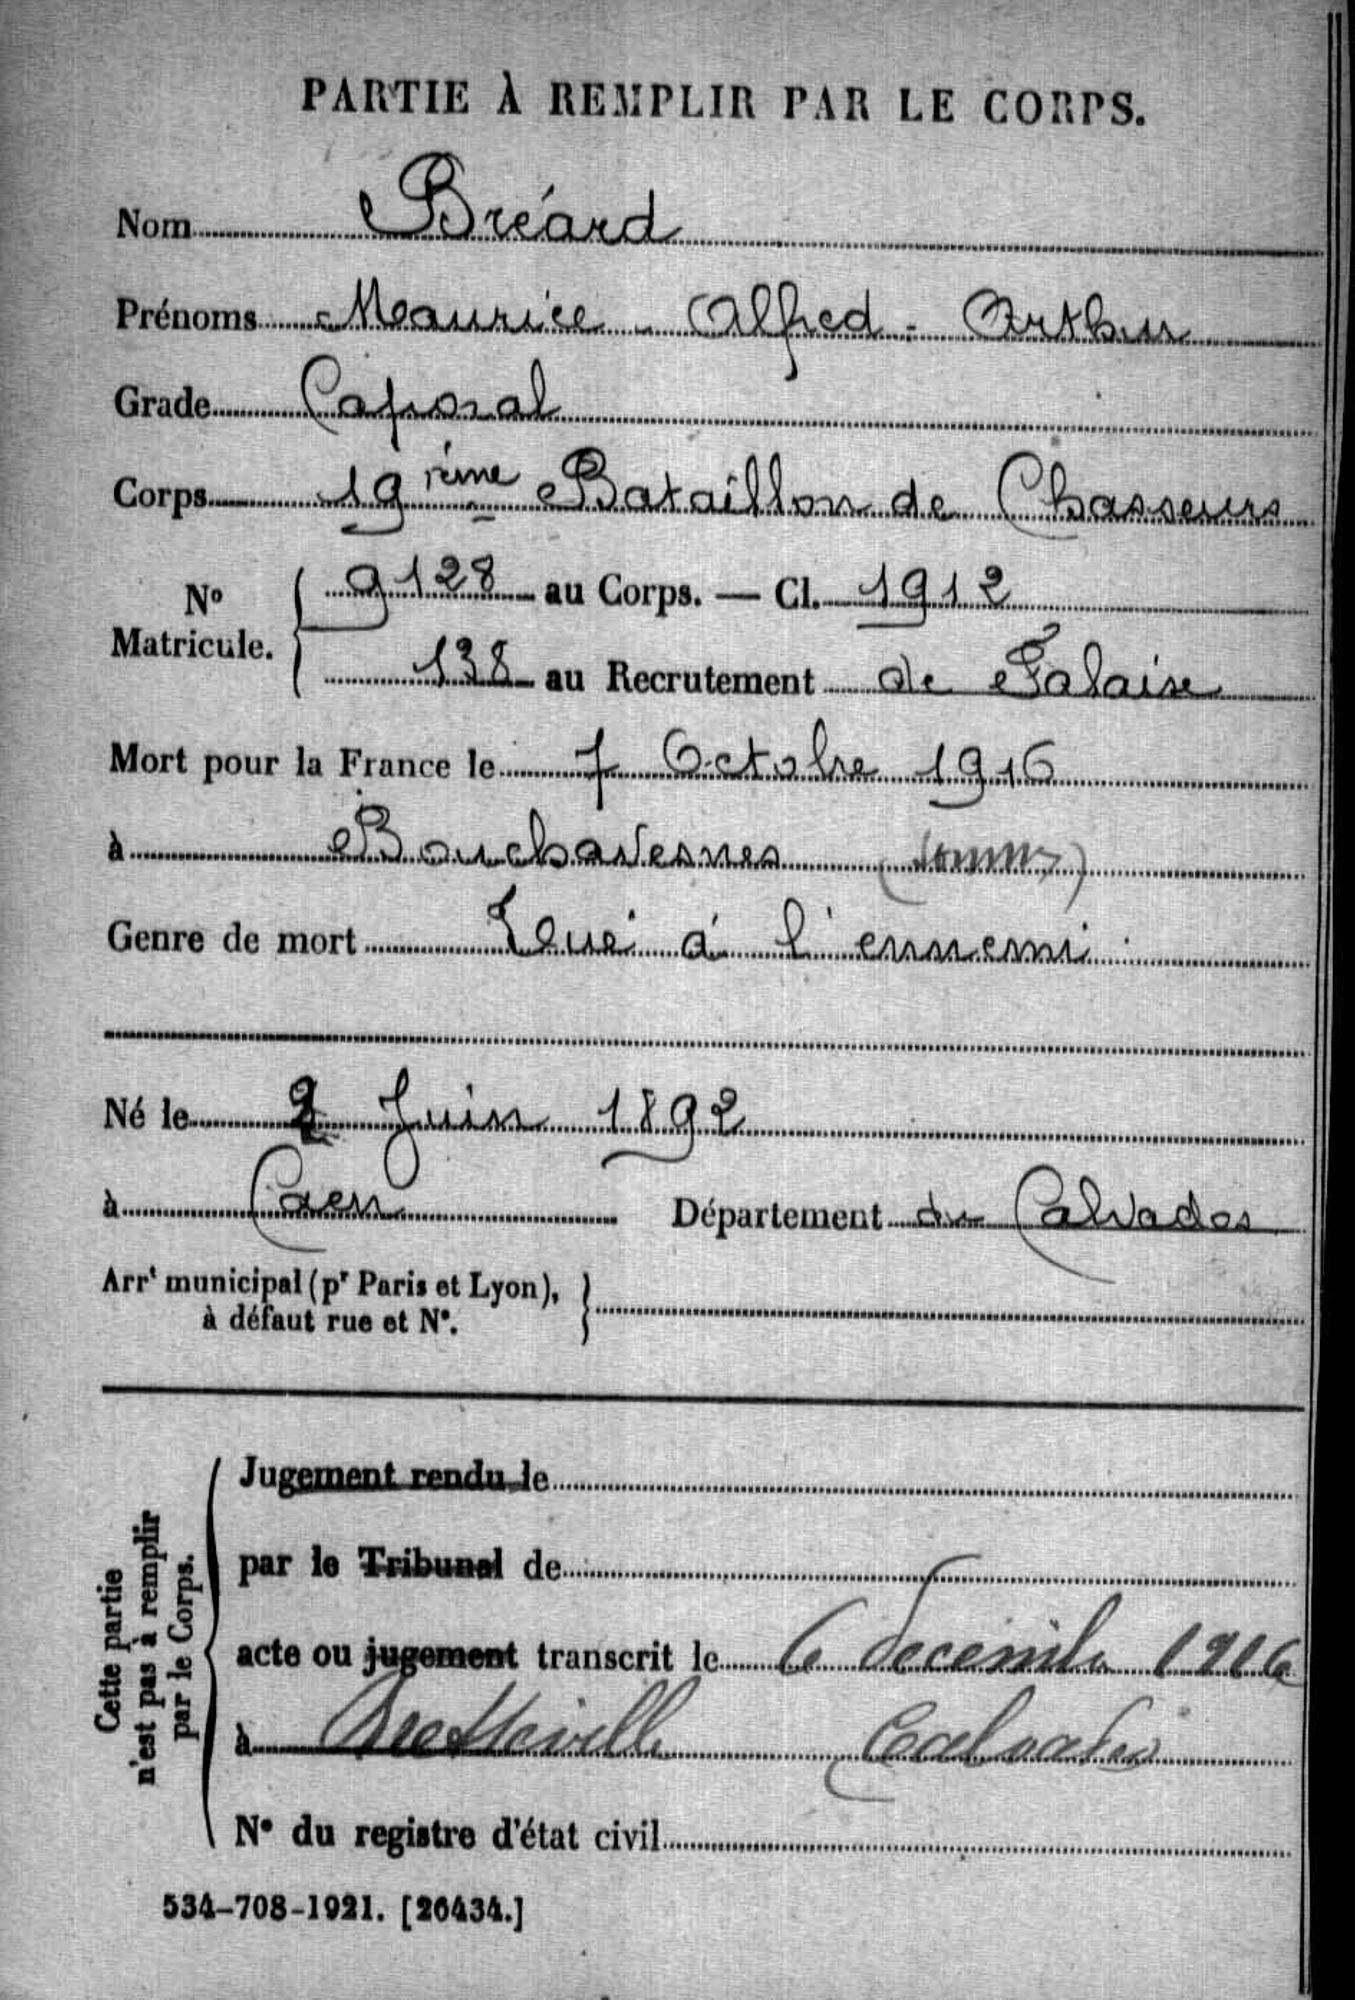 PARTIE À REMPLIR PAR LE CORPS.
Nom Bréard
Prénoms Maurice - Alfred - Arthur
Grade Caporal
Corps 19ième Bataillon de Chasseurs
No Matricule. { 9128 au Corps. — Cl. 1912
138 au Recrutement de Falaise
Mort pour la France le 7 Octobre 1916
à Bouchavesnes (Somme)
Genre de mort Tué à l'ennemi
Né le 2 Juin 1892
à Caen Département du Calvados
Arrt municipal (pr Paris et Lyon), }
à défaut rue et No.
Cette partie
n'est pas à remplir
par le Corps.
Jugement rendu le
par le Tribunal de
acte ou jugement transcrit le 6 décembre 1916
à Bretteville Calvados
No du registre d'état civil
534-708-1921. [26434.]